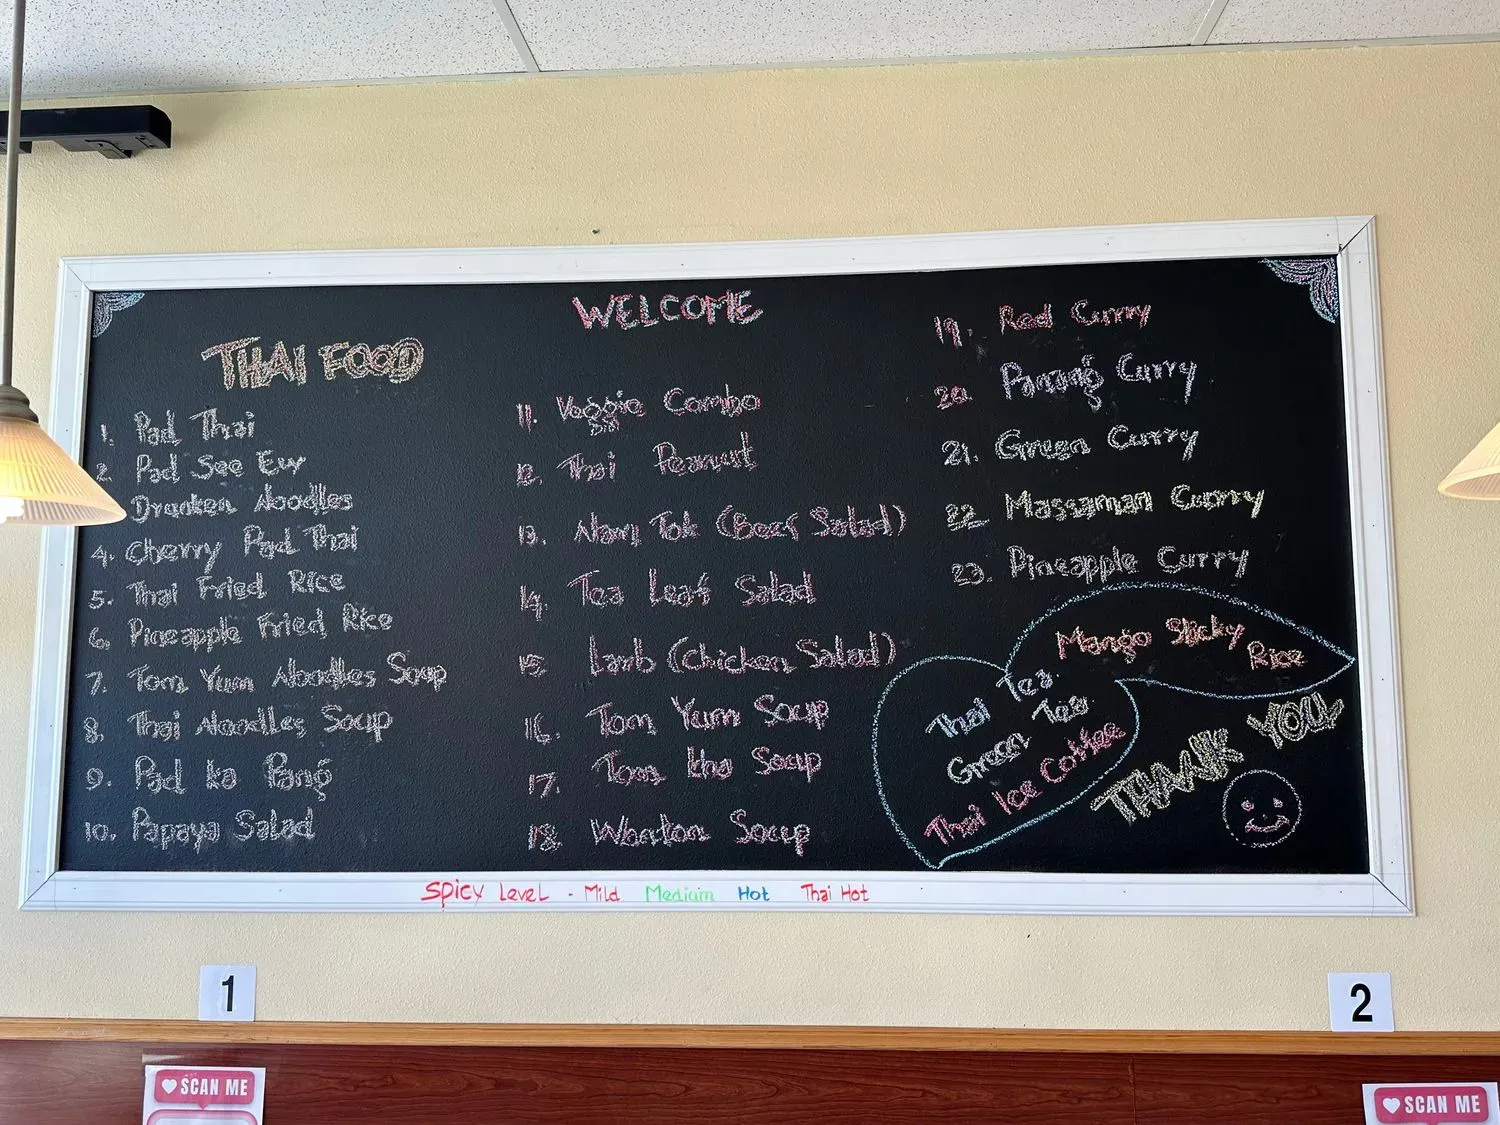 WELCOME
THAI FOOD
1. Pad Thai
2. Pad See Ew
Drunken Noodles
4. Cherry Pad Thai
5. Thai Fried Rice
6. Pineapple Fried Rice
7. Tom Yum Noodles Soup
8. Thai Noodles Soup
9. Pad ka Pang
10. Papaya Salad
11. Veggie Combo
12. Thai Peanut
13. Nam Tok (Beef Salad)
14. Tea Leaf Salad
15. Larb (Chicken Salad)
16. Tom Yum Soup
17. Tom kha Soup
18. Wonton Soup
19. Red Curry
20. Panang Curry
21. Green Curry
22. Massaman Curry
23. Pineapple Curry
Mango Sticky
Rice
Thai Tea
Green Tea
Thai Ice Coffee
THANK YOU
Spicy Level - Mild Medium Hot Thai Hot
1
2
SCAN ME
SCAN ME